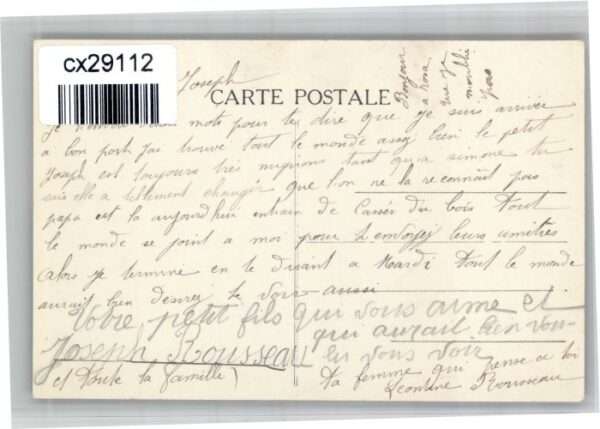 cx29112
Joseph
CARTE POSTALE
Bonjour
a Rosa
que je
n'oublie
pas
mots pour te dire que je suis arrivée
a bon port J'ai trouvé tout le monde assez bien le petit
Joseph est toujours très mignons tant qu'a simone tu
sais elle a tellement changer que l'on ne la reconnait pas
papa est la aujourd'hui entrain de casser du bois Tout
le monde se joint a moi pour t'envoyer leurs amitiés
Alors je termine en te disant a Mardi Tout le monde
aurait bien desirer te voir aussi
Votre petit fils qui vous aime et
qui aurait bien vou-
lu vous voir
Joseph Rousseau
et toute la famille
Ta femme qui pense a toi
Leontine Rousseau